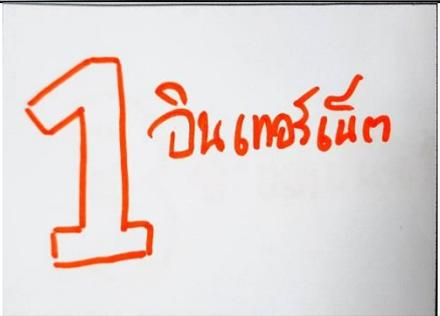 1 อินเทอร์เน็ต